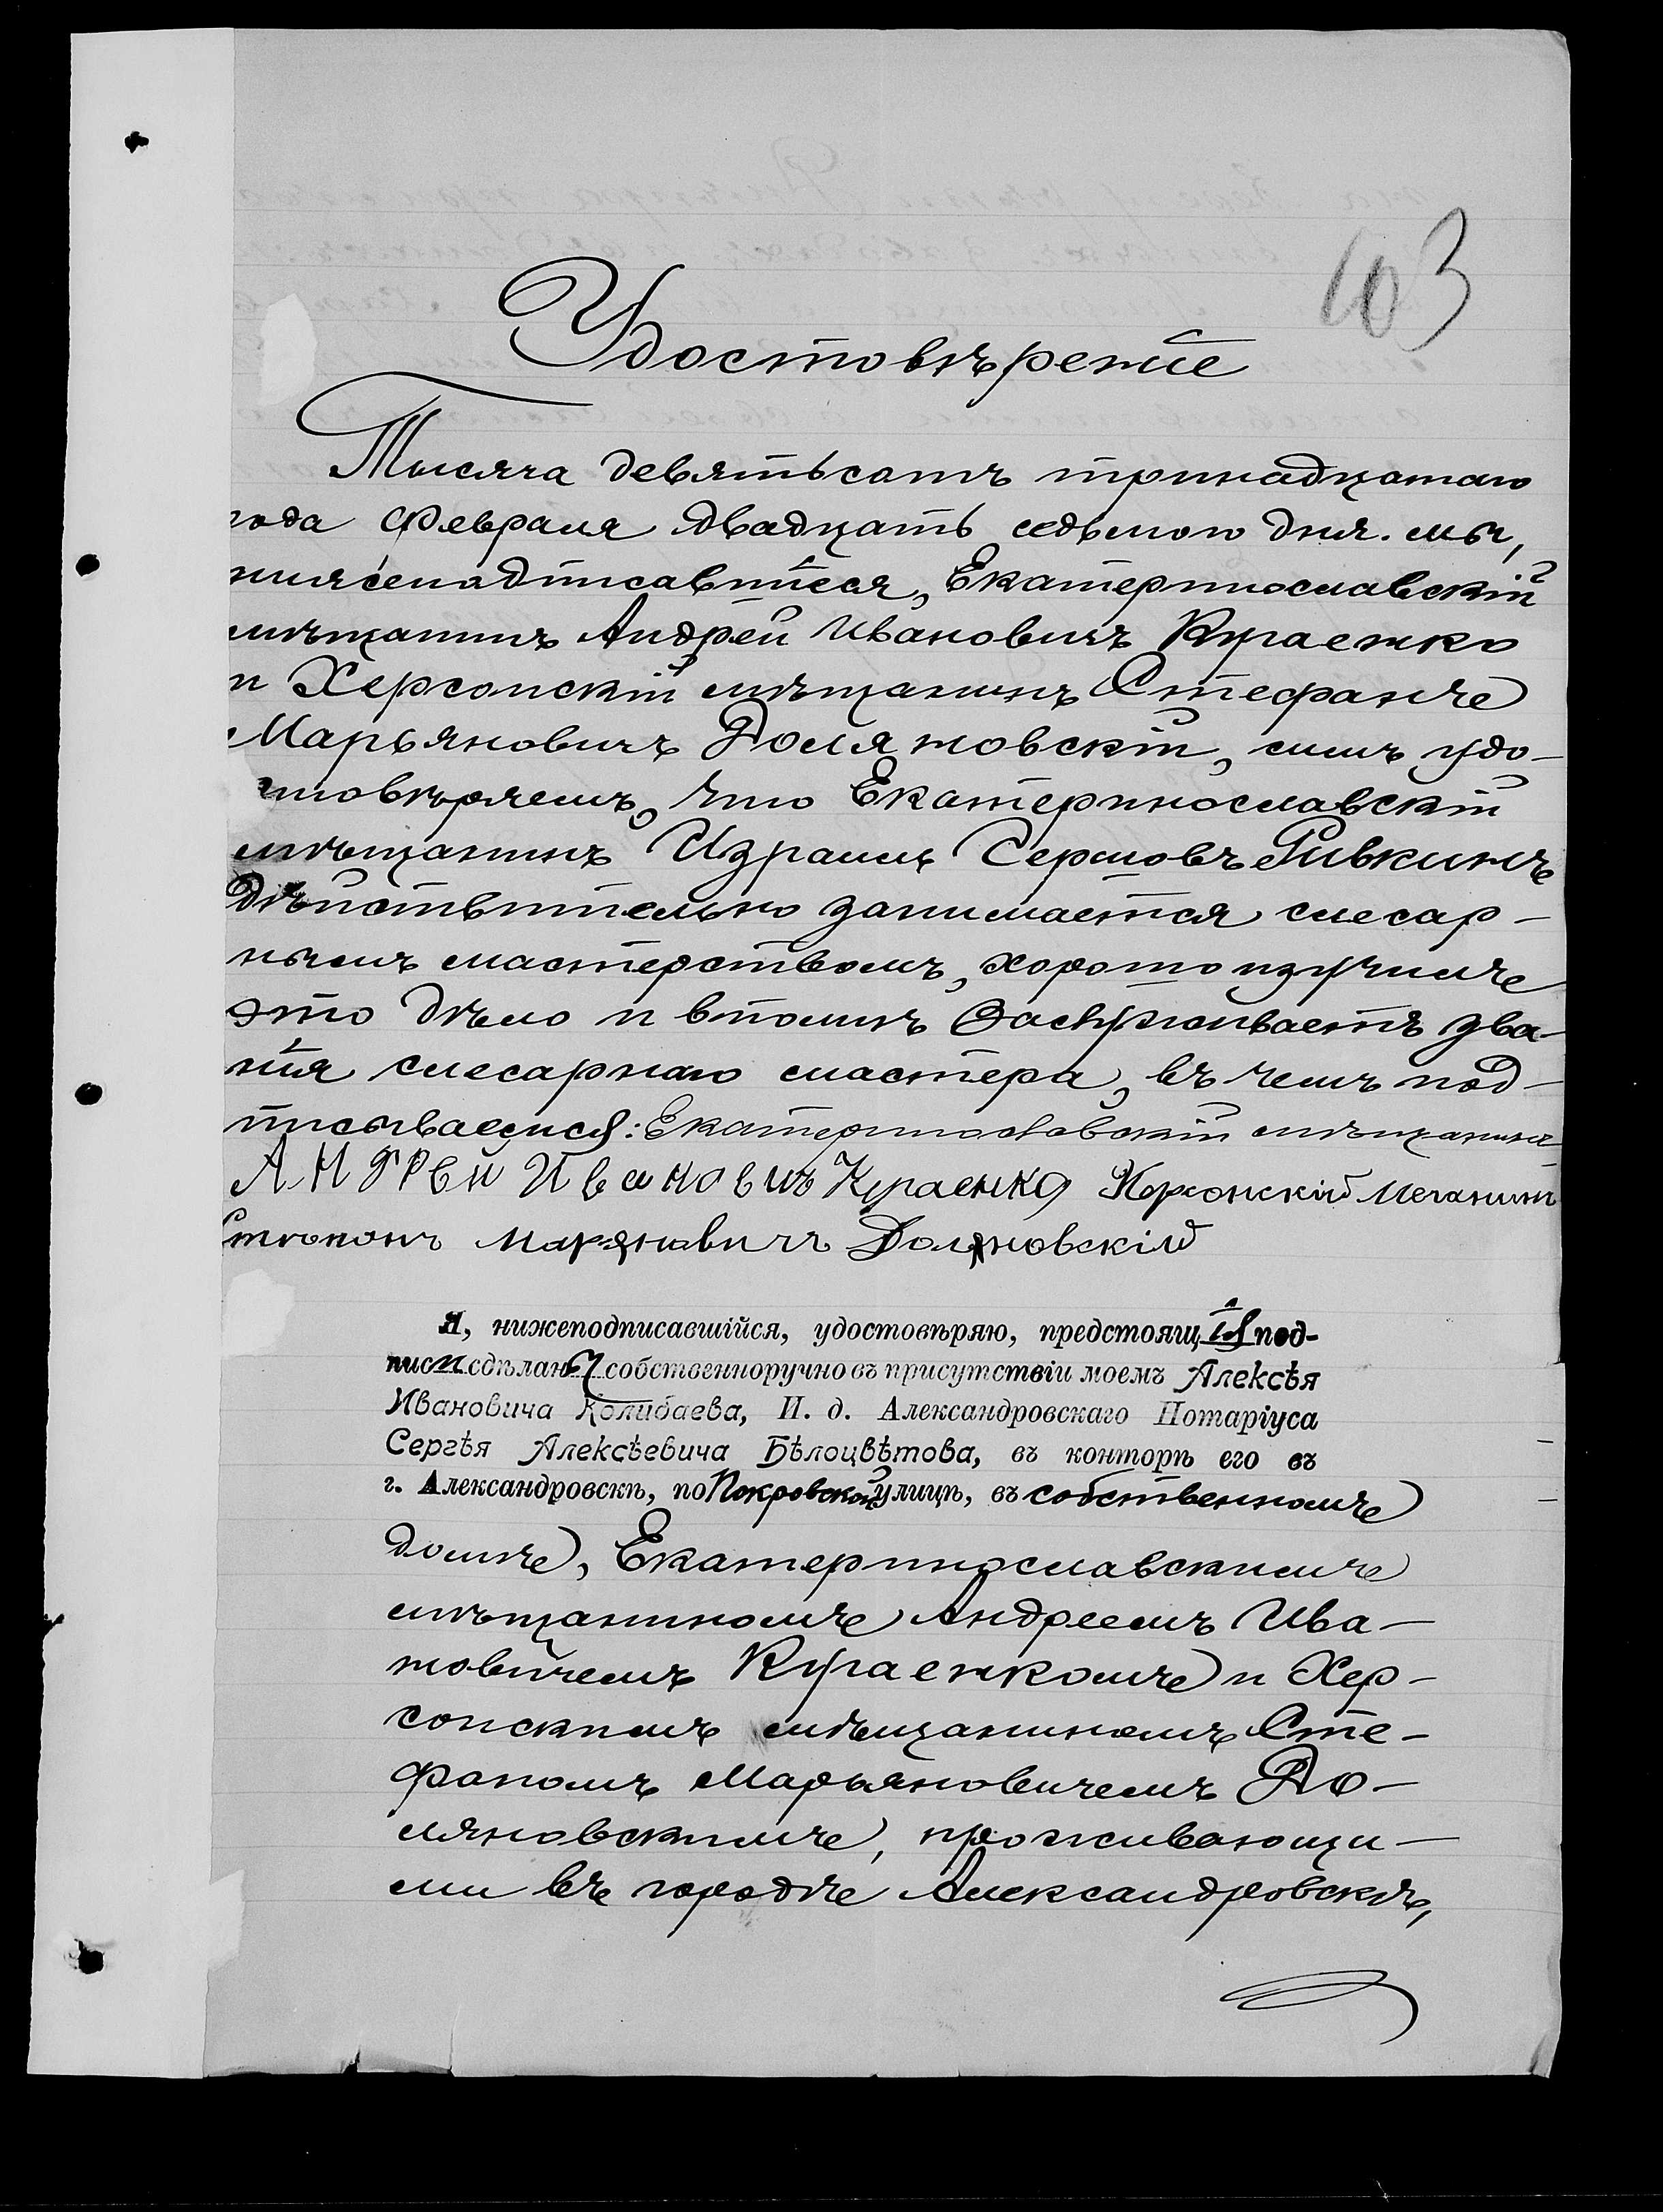 103
Удостовѣреніе
Тысяча девятьсотъ тринадцатаго
года Февраля двадцать седьмого дня. мы,
нижеподписавшіеся, Екатеринославскій
мѣщанинъ Андрей Ивановичъ Кучаенко
и Херсонскій мѣщанинъ Стефанъ
Марьяновичъ Доляновскій, симъ удо-
стовѣряемъ, что Екатеринославскій
мѣщанинъ Израиль Серговъ Ривкинъ
дѣйствительно занимается слесар-
нымъ мастерствомъ, хорошо изучилъ
это дѣло и вполнѣ заслуживаетъ зва-
нія слесарнаго мастера, въ чемъ под-
писываемся: Екатеринославскій мѣщанинъ
Андрей Ивановичъ Кучаенко Херсонскій мещанинъ
Стѣпонъ Маряновичъ Доляновскій
Я, нижеподписавшійся, удостовѣряю, предстоящія под-
писи сдѣланы собственноручно въ присутствіи моемъ Алексѣя
Ивановича Колибаева, И. д. Александровскаго Нотаріуса
Сергѣя Алексѣевича Бѣлоцвѣтова, въ конторѣ его въ
г. Александровскѣ, по Покровской улицѣ, въ собственномъ
домѣ, Екатеринославскимъ
мѣщаниномъ Андреемъ Ива-
новичемъ Кучаенкомъ и Хер-
сонскимъ мѣщаниномъ Сте-
фаномъ Марьяновичемъ До-
ляновскимъ, проживающи-
ми въ городѣ Александровскѣ,